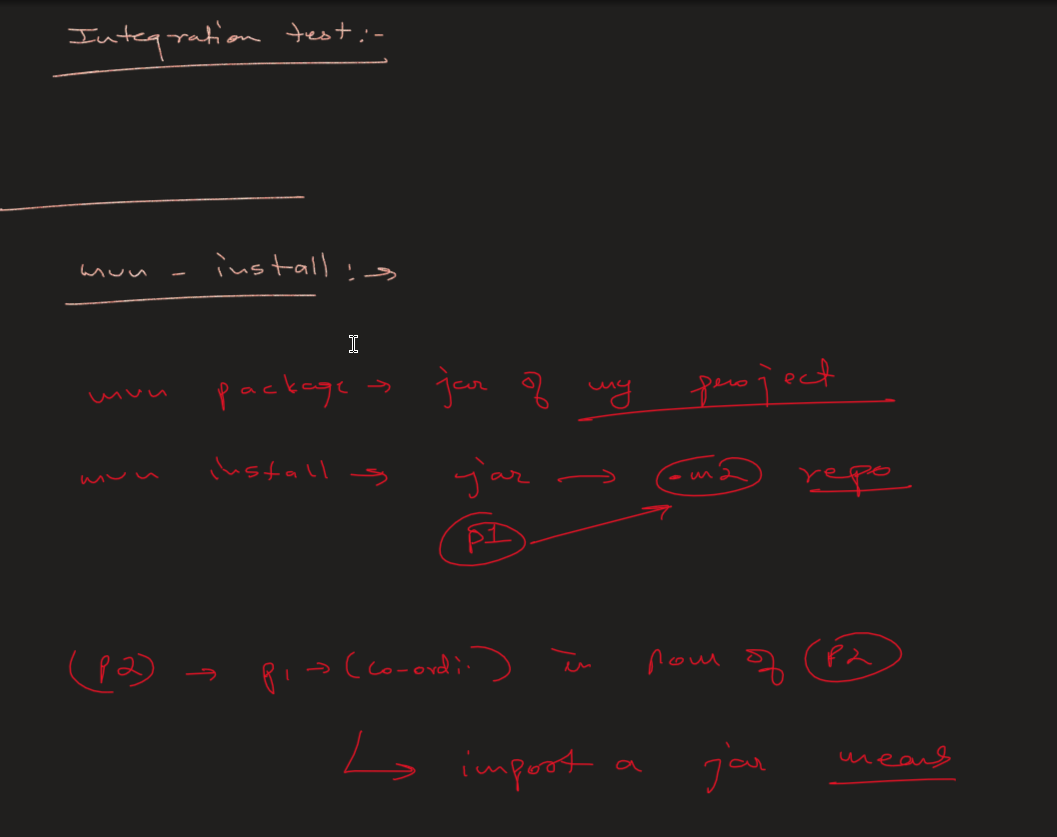 Integration test:-
mvn - install :→
mvn package → jar of my project
mvn install → jar → .m2 repo
P1
(P2) → P1 → (co-ordi..) in pom of P2
↳ import a jar means